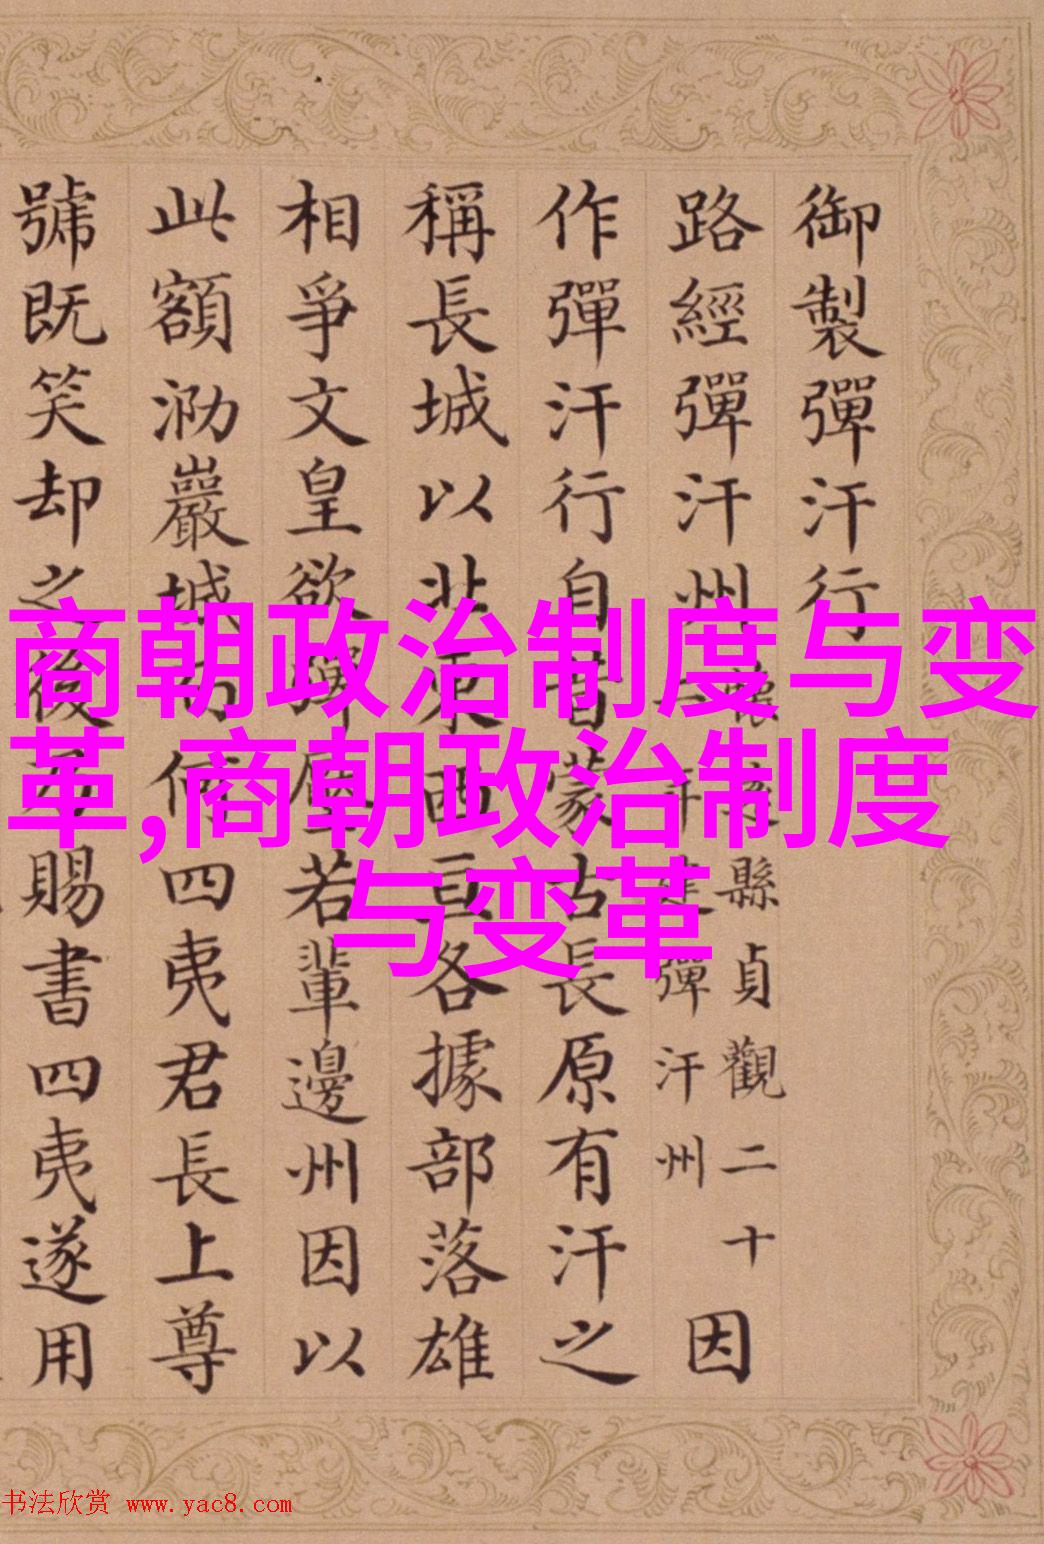 御製彈汗行
路經彈汗州
懷柔縣貞觀二十
二年建彈汗州
因
作彈汗行自昔蒙古長原有汗之
稱長城以北東西亘各據部落雄
相爭文皇欲彈壓若輩邊州因以
此額泐巖城何四夷君長上尊
號既笑却之後乃賜書四夷遂用
商朝政治制度与变
革,商朝政治制度
与变革
书法欣赏 www.yac8.com